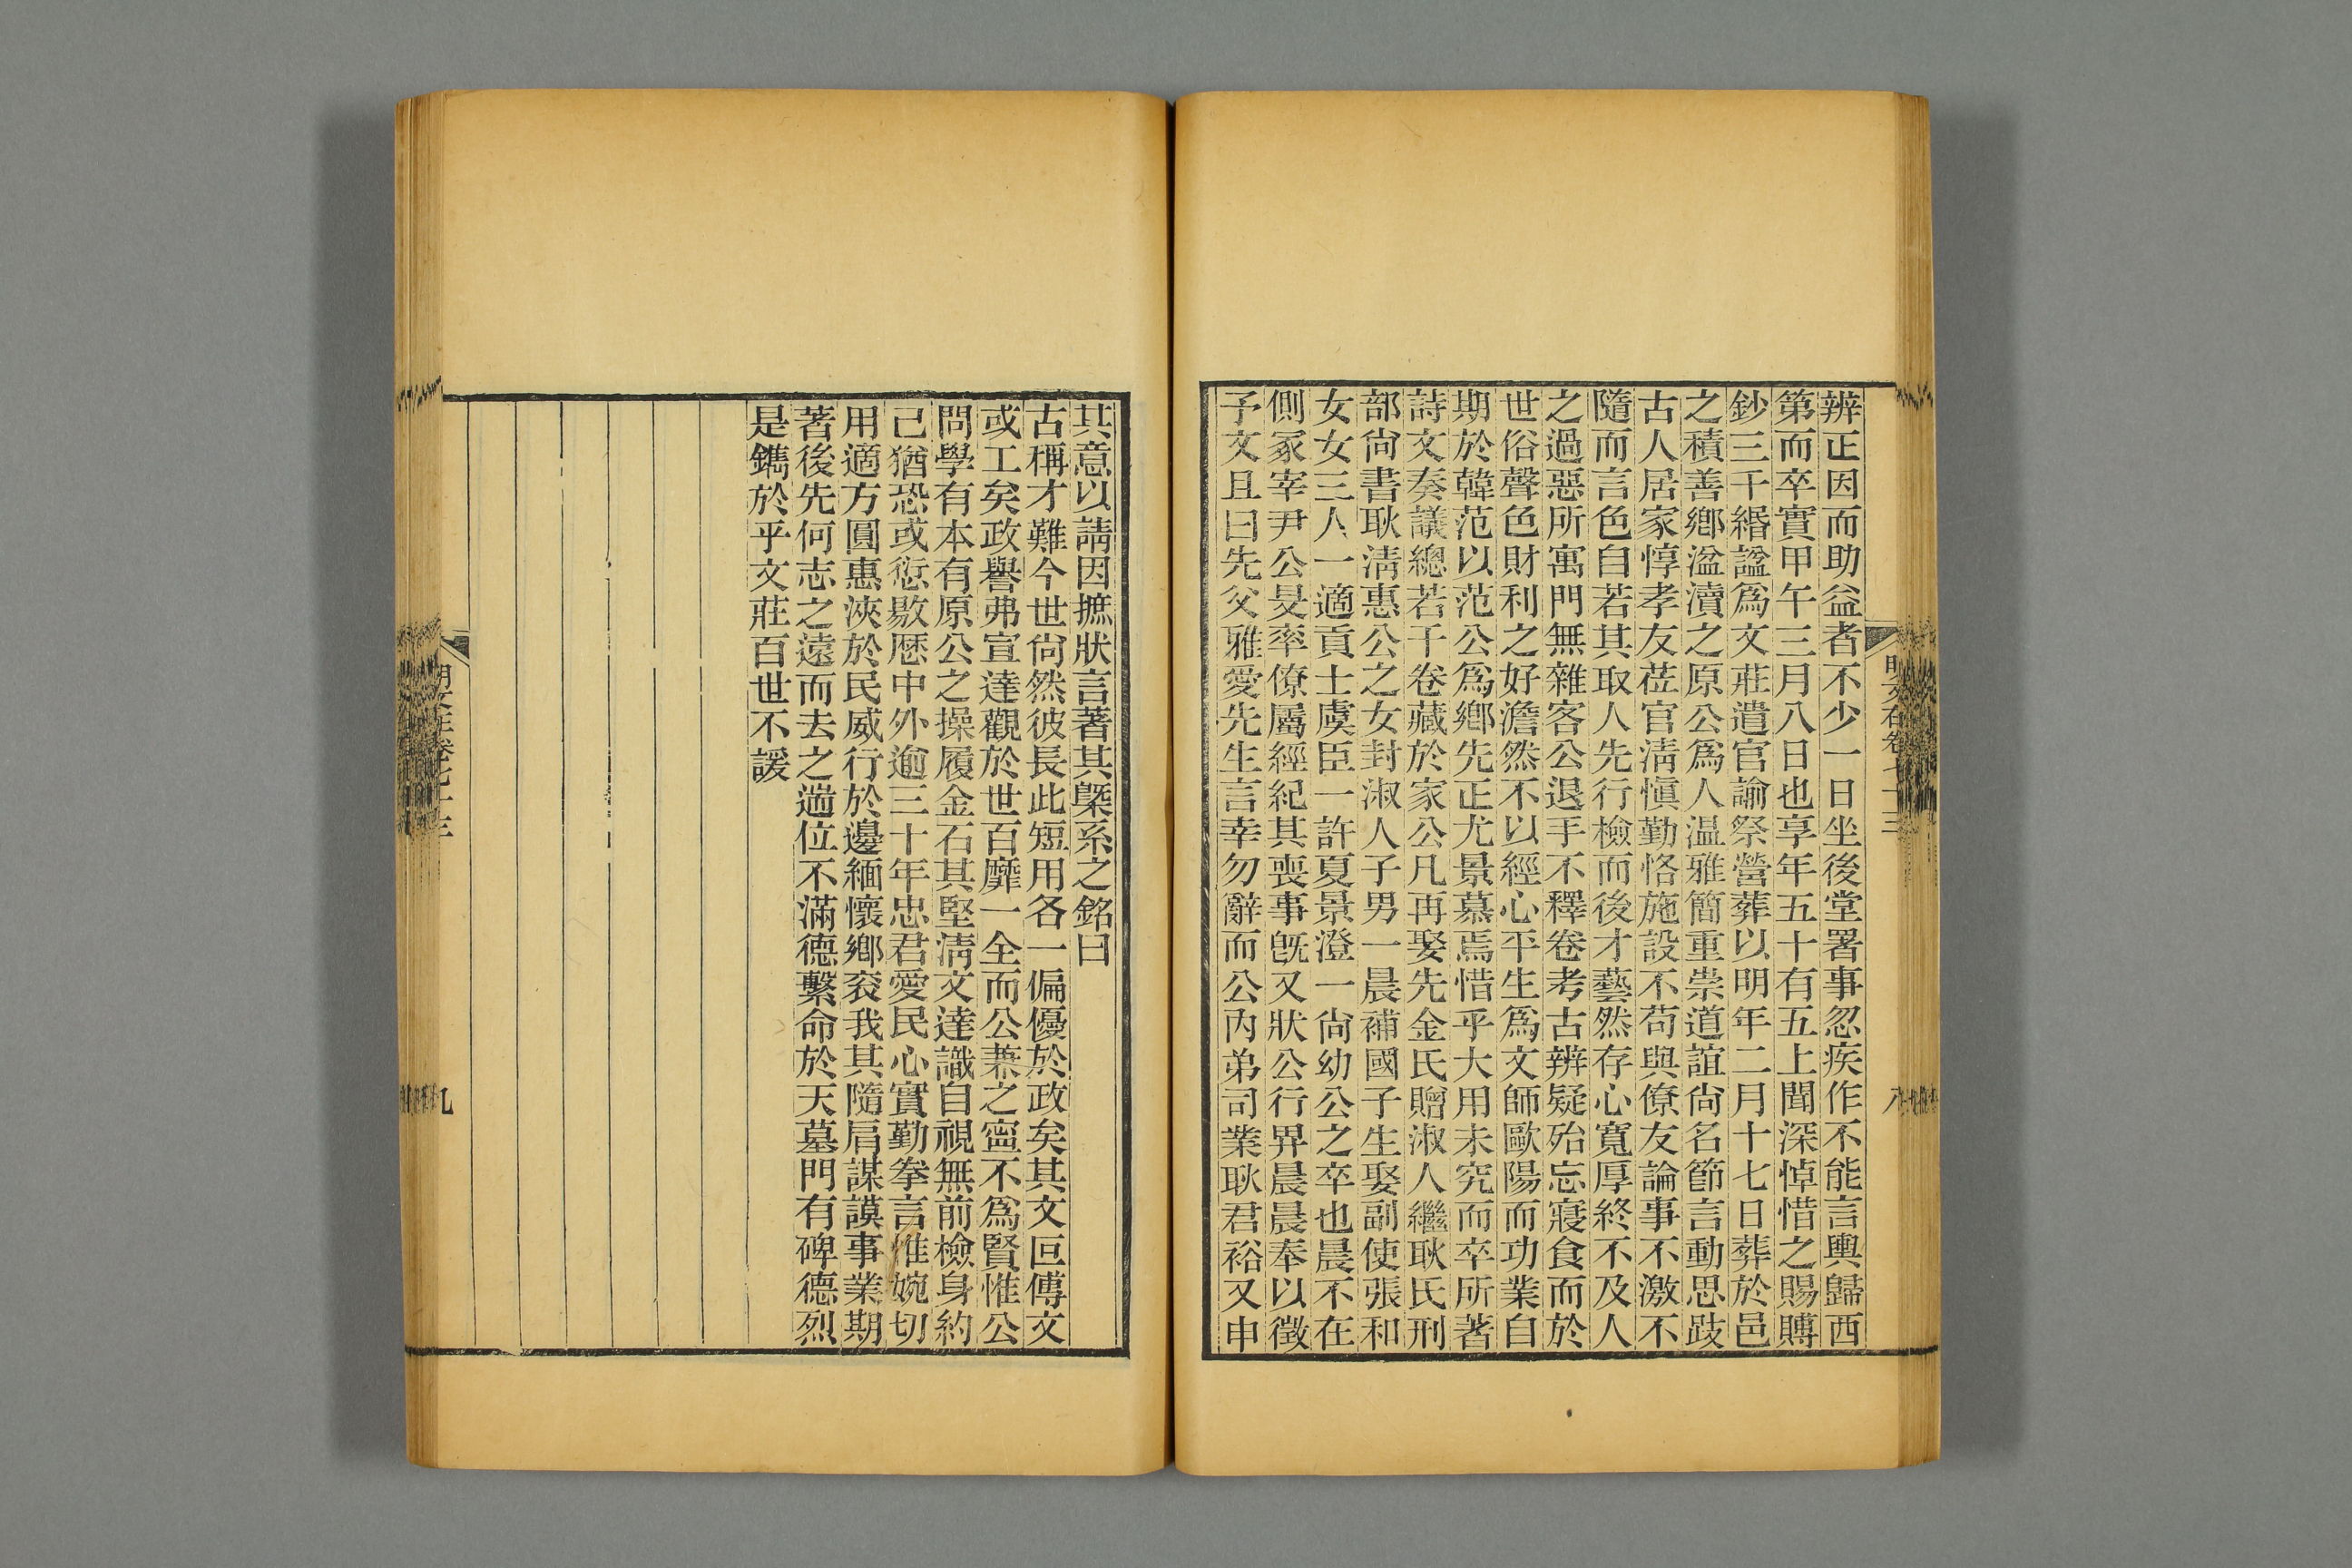 辨正因而助益者不少一日坐後堂署事忽疾作不能言輿歸西
第而卒實甲午三月八日也享年五十有五上聞深悼惜之賜賻
鈔三千緡諡爲文莊遣官諭祭營葬以明年二月十七日葬於邑
之積善鄉湓瀆之原公爲人温雅簡重崇道誼尙名節言動思跂
古人居家惇孝友莅官淸愼勤恪施設不苟與僚友論事不激不
隨而言色自若其取人先行檢而後才藝然存心寬厚終不及人
之過惡所寓門無雜客公退手不釋卷考古辨疑殆忘寢食而於
世俗聲色財利之好澹然不以經心平生爲文師歐陽而功業自
期於韓范以范公爲鄉先正尤景慕焉惜乎大用未究而卒所著
詩文奏議總若干卷藏於家公凡再娶先金氏贈淑人繼耿氏刑
部尙書耿淸惠公之女封淑人子男一晨補國子生娶副使張和
女女三人一適貢士虞臣一許夏景澄一尙幼公之卒也晨不在
側冢宰尹公旻率僚屬經紀其喪事旣又狀公行畀晨晨奉以徵
予文且曰先父雅愛先生言幸勿辭而公內弟司業耿君裕又申
明文在卷七十三
八
其意以請因摭狀言著其槩系之銘曰
古稱才難今世尙然彼長此短用各一偏優於政矣其文叵傳文
或工矣政譽弗宣達觀於世百靡一全而公兼之寍不爲賢惟公
問學有本有原公之操履金石其堅淸文達識自視無前檢身約
己猶恐或愆敭歷中外逾三十年忠君愛民心實勤拳言惟婉切
用適方圓惠浹於民威行於邊緬懷鄉袞我其隨肩謀謨事業期
著後先何志之遠而去之遄位不滿德繫命於天墓門有碑德烈
是鐫於乎文莊百世不諼
明文在卷七十三
九